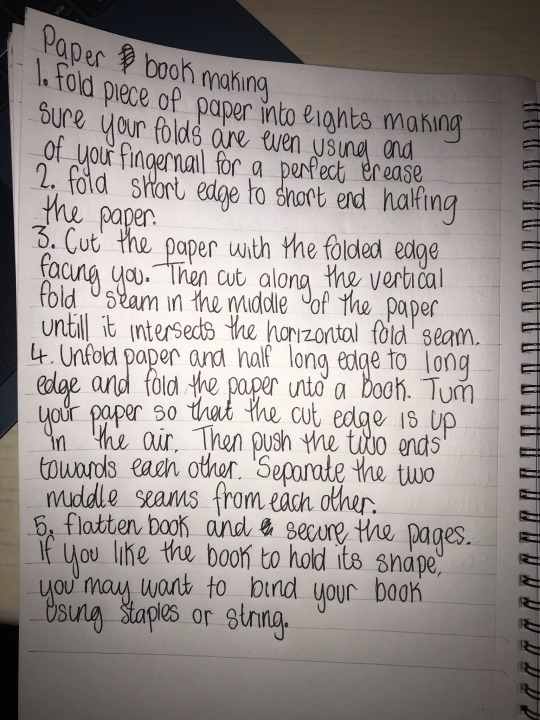 Paper book making
1. fold piece of paper into eights making
sure your folds are even using end
of your fingernail for a perfect crease
2. fold short edge to short end halfing
the paper.
3. Cut the paper with the folded edge
facing you. Then cut along the vertical
fold seam in the middle of the paper
untill it intersects the horizontal fold seam.
4. Unfold paper and half long edge to long
edge and fold the paper into a book. Turn
your paper so that the cut edge is up
in the air. Then push the two ends
towards each other. Separate the two
middle seams from each other.
5. flatten book and secure the pages.
If you like the book to hold its shape,
you may want to bind your book
Using staples or string.